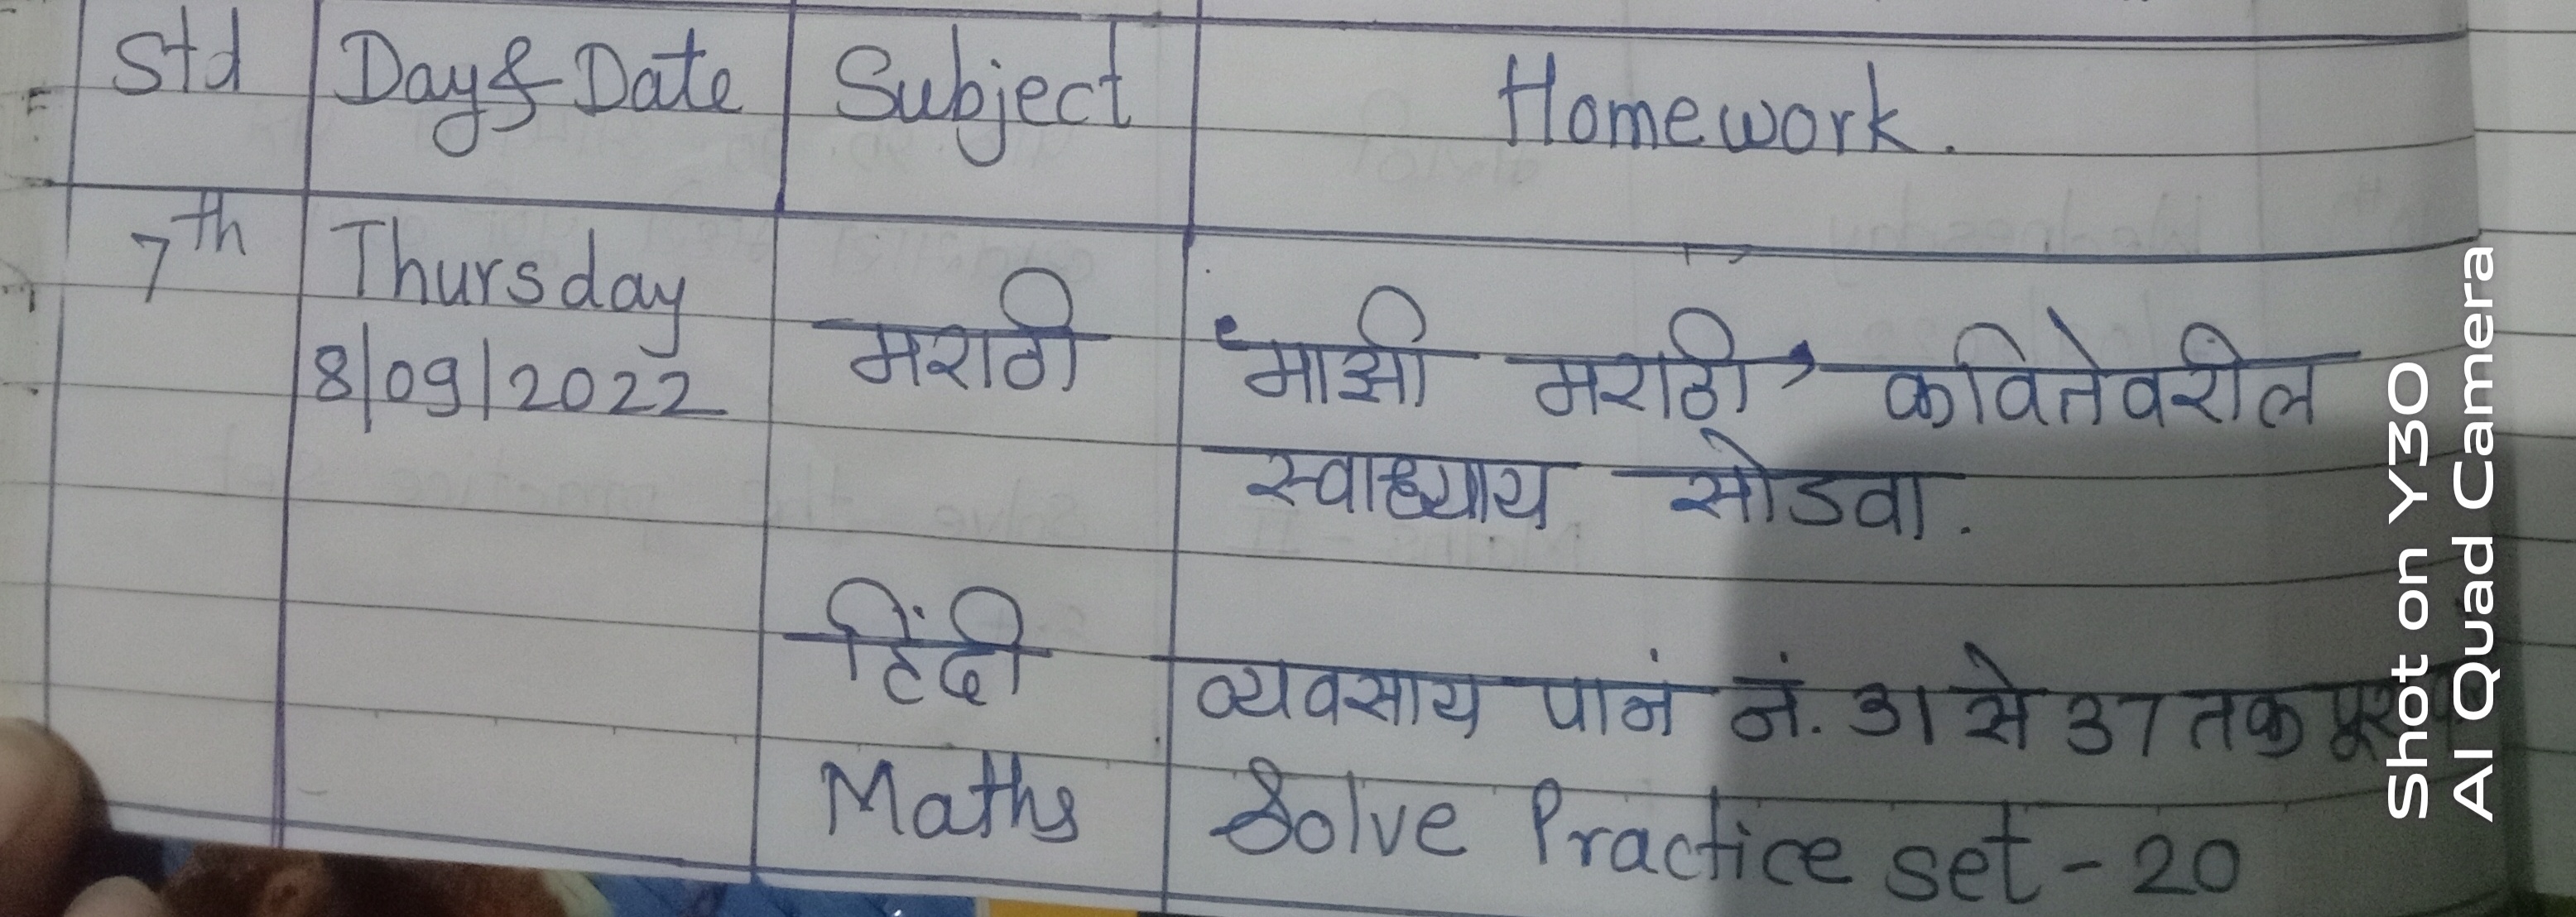 Std Day & Date Subject Homework.
7th Thursday
8/09/2022 मराठी 'माझी मराठी' कवितेवरील
स्वाध्याय सोडवा.
हिंदी व्यवसाय पानं नं. 31 से 37 तक
Maths Solve Practice set - 20
Shot on Y30
AI Quad Camera